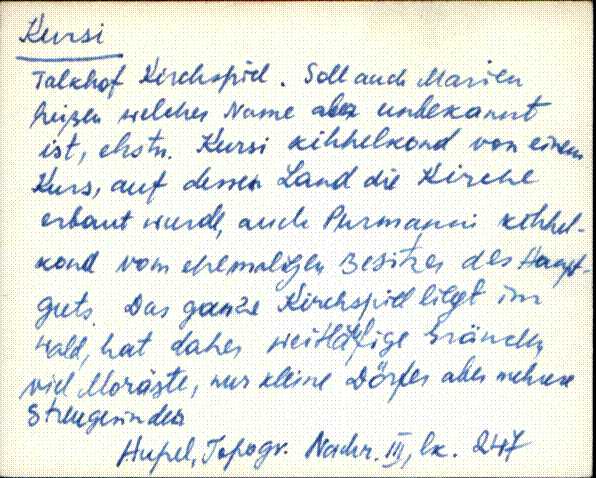 Kursi
Talkhof Kirchspiel. Soll auch Marien
heizen welcher Name aber unbekannt
ist, ehstn. Kursi kihhelkond von einem
Kurs, auf dessen Land die Kirche
erbaut wurde, auch Purmanni kihhel-
kond vom ehemaligen Besitzer des Haupt-
guts. Das ganze Kirchspiel liegt im
Wald, hat daher weitläfige Gränden,
viel Moräste, nur kleine Dörfer aber mehrere
Streugesinder
Hupel, Topogr. Nachr. III, lk. 247